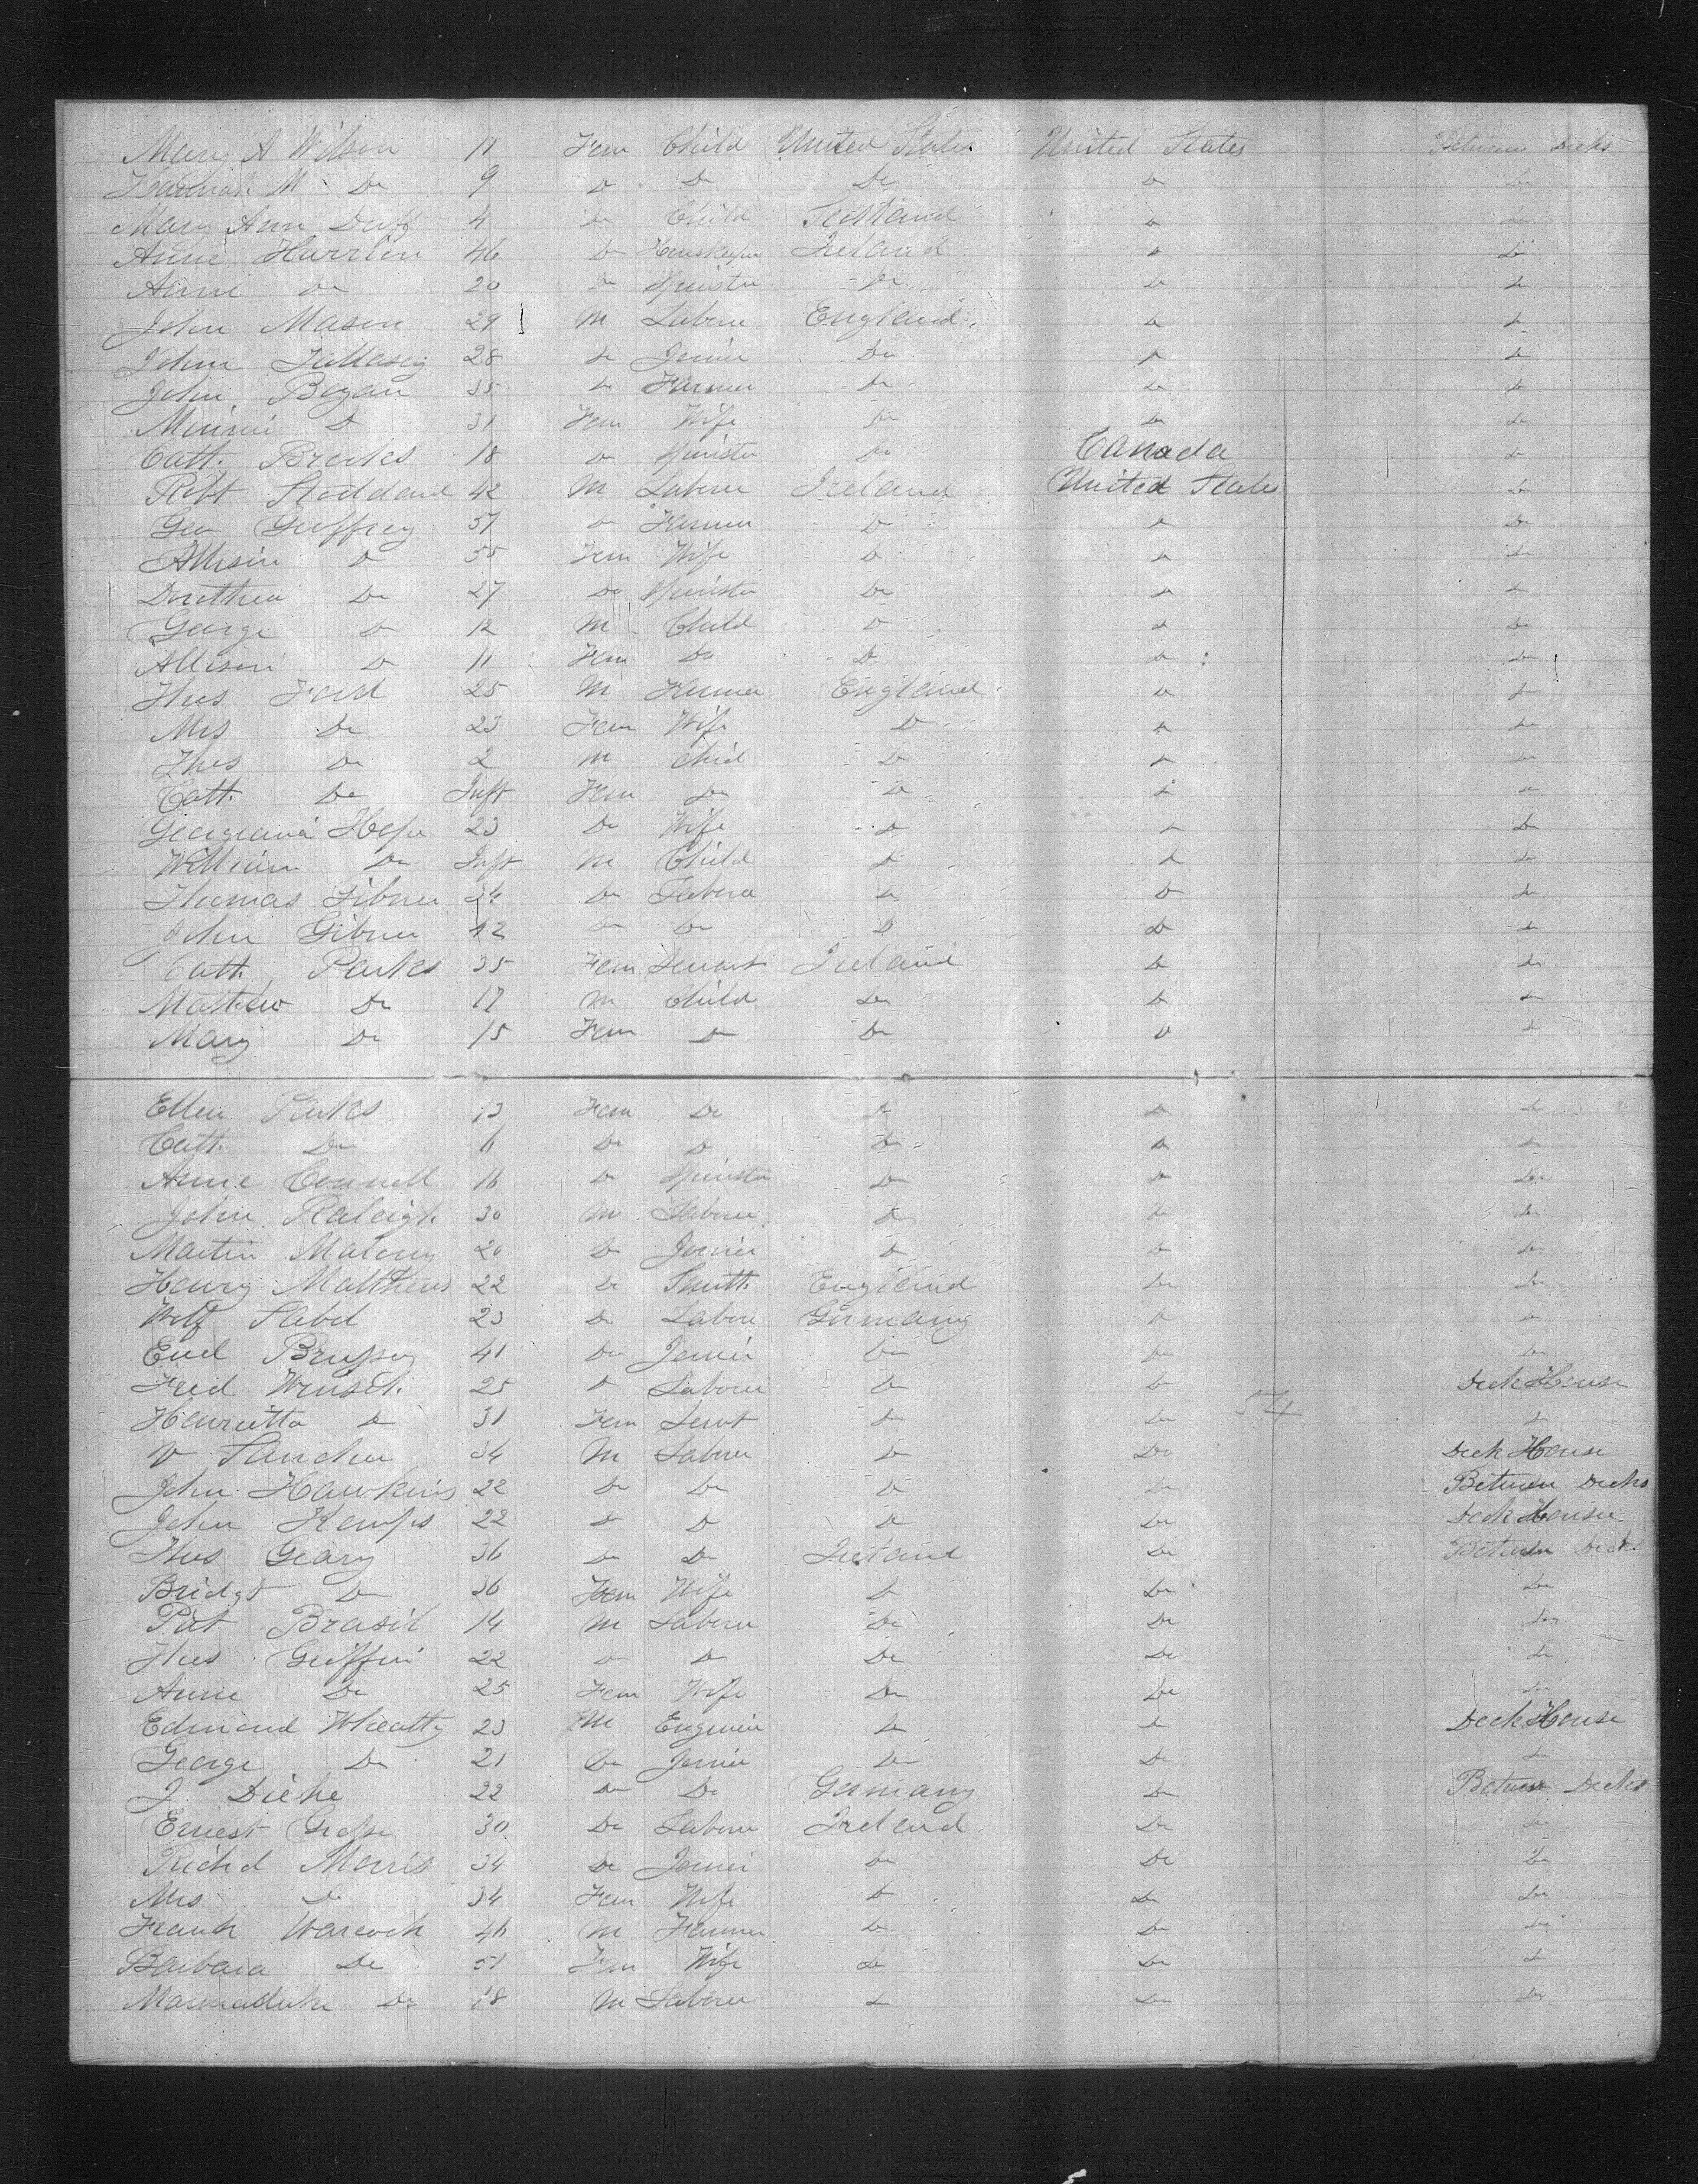 Mary A Wilson 11 Fem Child United States United States Between Decks
Hannah M Do 9 Do Do Do Do Do
Mary Ann Duff 4 Do Child Scotland Do Do
Anne 46 Do Ireland Do Do
Anne Do 20 Do Spinster Do Do Do
John Mason 29 M Laborer England Do Do
John 28 Do Joiner Do Do Do
John Bogan 35 Do Farmer Do Do Do
Minnie Do 31 Fem Wife Do Do Do
Cath. 18 Do Spinster Do Canada Do
Robt Stoddard 42 M Laborer Ireland United States Do
Geo Geoffrey 57 Do Farmer Do Do Do
Allison Do 55 Fem Wife Do Do Do
Dorothea Do 27 Do Spinster Do Do Do
George Do 12 M Child Do Do Do
Allison Do 11 Fem Do Do Do Do
Thos Ford 25 M Farmer England Do Do
Mrs Do 23 Fem Wife Do Do Do
Thos Do 2 M Child Do Do Do
Cath. Do Inft Fem Do Do Do Do
Georgeana 23 Do Wife Do Do Do
William Do Inft M Child Do Do Do
Thomas Do Laborer Do Do Do
John Do Do Do Do Do
Cath. Parkes 35 Fem Servant Ireland Do Do
Mathew Do 17 M Child Do Do Do
Mary Do 15 Fem Do Do Do Do
Ellen Parkes 13 Fem Do Do Do Do
Cath. Do Do Do Do Do Do
Anne Connell Do Spinster Do Do Do
John Raleigh 30 M Laborer Do Do Do
Martin Malony 20 Do Joiner Do Do Do
Henry Matthews 22 Do Smith England Do Do
23 Do Laborer Germany Do Do
41 Do Joiner Do Do Do
Fred 25 Do Laborer Do Do Deck House
54
Henrietta Do 31 Fem Servt Do Do Do
34 M Laborer Do Do Deck House
John Hawkins 22 Do Do Do Do Between Decks
John Kemps 22 Do Do Do Do Deck House
Thos Geary 36 Do Do Ireland Do Between Decks
Bridgt Do 36 Fem Wife Do Do Do
Pat Brasil 14 M Laborer Do Do Do
Thos Griffin 22 Do Do Do Do Do
Anne Do 25 Fem Wife Do Do Do
Edmond 23 M Engineer Do Do Deck House
George Do 21 Do Joiner Do Do Do
J. 22 Do Do Germany Do Between Decks
Ernest 30 Do Laborer Ireland Do Do
Richd Morris 34 Do Joiner Do Do Do
Mrs Do 34 Fem Wife Do Do Do
Frank Warcock 46 M Farmer Do Do Do
Barbara Do 51 Fem Wife Do Do Do
Marmaduke Do 18 M Laborer Do Do Do